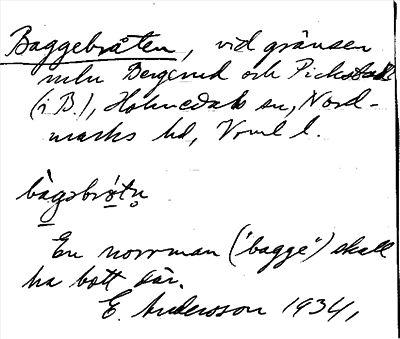 Baggebråten, vid gränsen
mln Bergerud och Pickstad
(i B.), Holmedals sn, Nord-
marks hd, Vrml l.
bàgəbrǿtn̥
En norrman ("bagge") skall
ha bott där.
E. Andersson 1934,